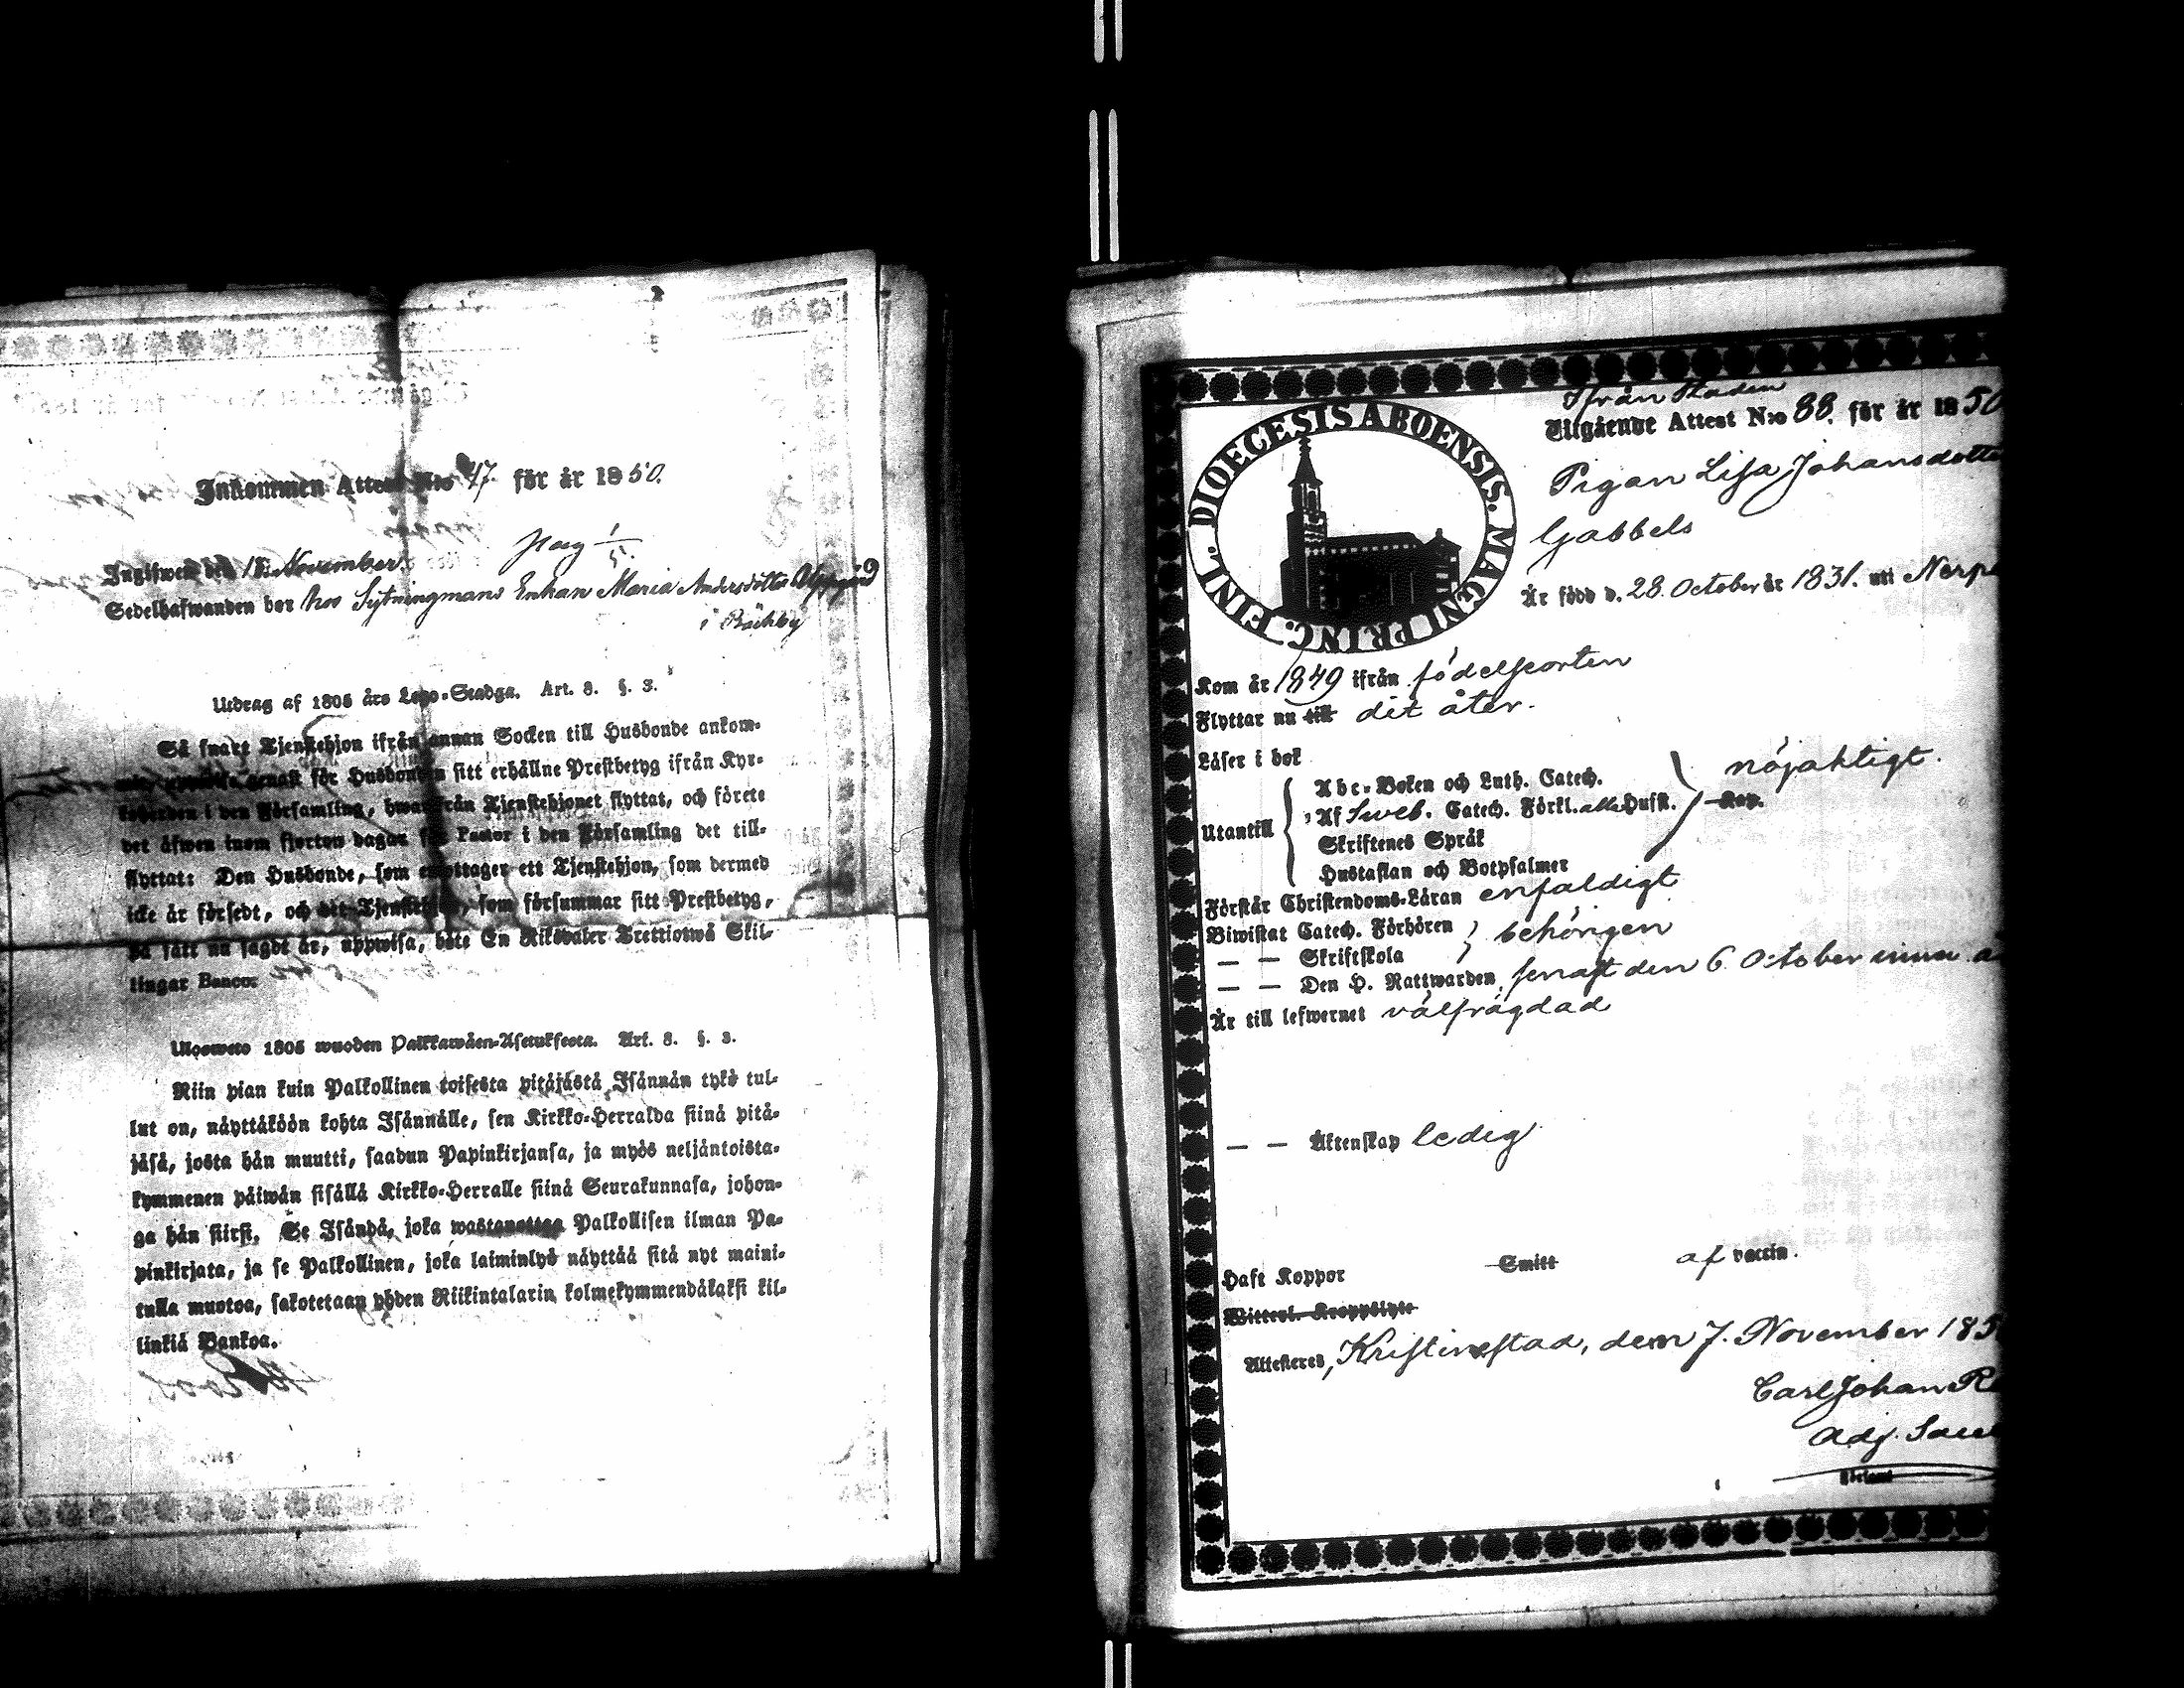 Inkommen Attest N:o 47. för år 1850.
Ingifwen den 15 November.
Sedelhafwanden bor hos Sytningmans Enkan Maria Andersdotter Uppgård
i Räckby
Utdrag af 1805 års Lego-Stadga. Art. 8. §. 3.
Så snart Tjenstehjon ifrån annan Socken till Husbonde ankom-
genast för Husbonden sitt erhållne Prestbetyg ifrån Kyr-
koherden i den Församling, hwarifrån Tjenstehjonet flyttat, och förete
det äfwen inom fjorton dagar för Pastor i den Församling det till-
flyttat: Den Husbonde, som emottager ett Tjenstehjon, som dermed
icke är försedt, och det Tjenstehjon, som försummar sitt Prestbetyg,
på sätt nu sagdt är, uppwisa, böte En Riksdaler Trettiotwå Skil-
lingar Banco:
Ulosweto 1805 wuoden Palkkawäen-Asetuksesta. Art. 8. §. 3.
Niin pian kuin Palkollinen toisesta pitäjästä Isännän tykö tul-
lut on, näyttäköön kohta Isännälle, sen Kirkko-Herralda siinä pitä-
jäsä, josta hän muutti, saadun Papinkirjansa, ja myös neljäntoista-
kymmenen päiwän sisällä Kirkko-Herralle siinä Seurakunnasa, johon-
ga hän siirst. Se Isändä, joka wastanottaa Palkollisen ilman Pa-
pinkirjata, ja se Palkollinen, joka laiminlyö näyttää sitä nyt maini-
tulla muotoa, sakotetaan yhden Riikintalarin kolmekymmendäkaksi kil-
linkiä Bankoa.
DIOECESIS ABOENSIS. MAGNI PRINC. FINL.
Ifrån Staden
Utgående Attest N:o 88. för år 1850
Pigan Lisa Johansdotte
Gabbels
Är född d. 28. October år 1831. uti Nerpe
Kom år 1849 ifrån födelseorten
Flyttar nu till dit åter.
Läser i bok
Abc-Boken och Luth. Catech.
nöjaktigt.
Utantill
Af Sweb. Catech. Förkl. alla Hufst.
Kap.
Skriftenes Språk
Hustaflan och Botpsalmer
Förstår Christendoms-Läran enfaldigt
Biwistat Catech. Förhören
behörigen
— — Skriftskola
— — Den H. Nattwarden, senast den 6 October
Är till lefwernet välfrägdad
— — Äktenskap ledig
Haft Koppor Smitt af vaccin.
Witterl. Kroppslyte
Attesteres, Kristinestad, dem 7. November 185
Carl Johan R
Adj.